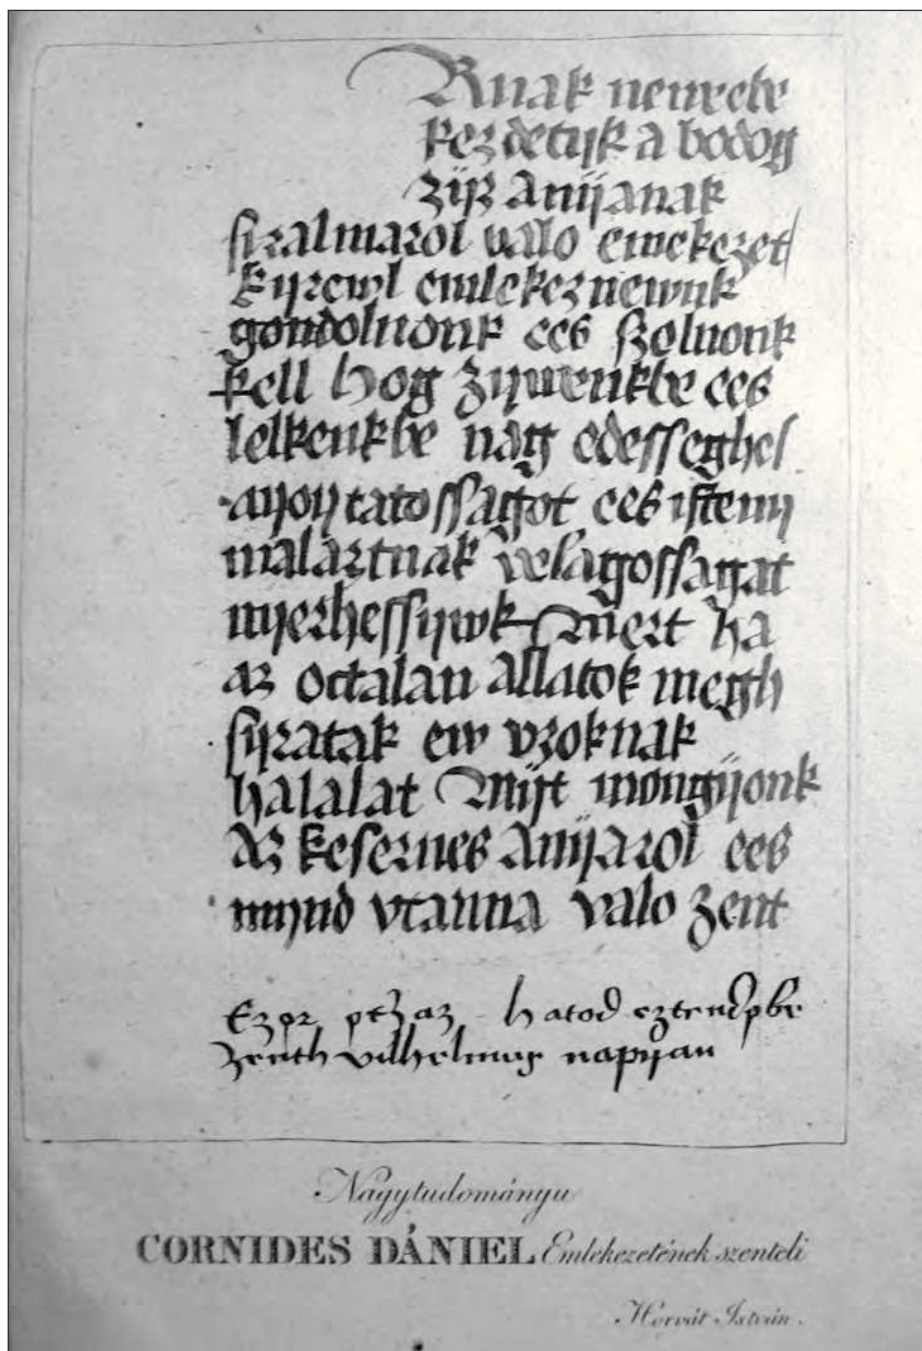 Rnak neuebe
kezdetijk a bodog
zijz Anijanak
siralmarol valo emekezet
Kijrewl emlekeznewnk
gondolnonk ees szolnonk
kell hog zijwenkbe ees
lelkenkbe nagÿ edesseghes
aÿoÿtatossagot ees istenij
malaztnak velagossagat
nijerhessijwk Mert ha
az octalan allatok megh
sijratak ew vroknak
halalat Mijt mongijonk
Az kesernes Anijarol ees
mijnd vtanna valo zent
Ezor ... zaz hatod eztendpbe
zenth vilhelmus napijan
Nagytudományu
CORNIDES DÁNIEL Emlekezetének szenteli
Horvát István.